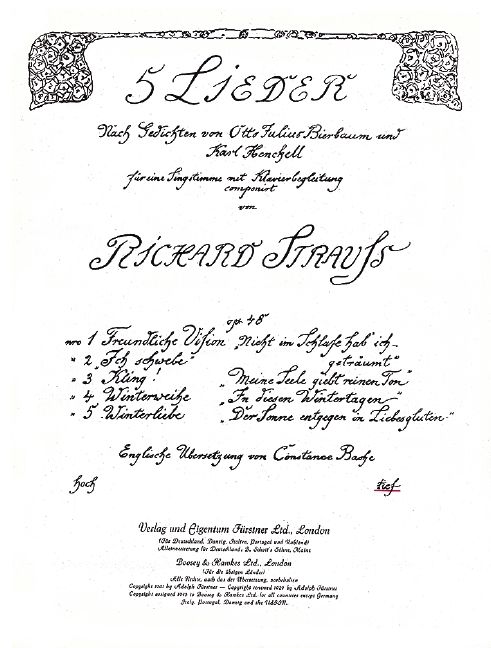 5 LIEDER
Nach Gedichten von Otto Julius Bierbaum und
Karl Henckell
für eine Singstimme mit Klavierbegleitung
componirt
von
RICHARD STRAUSS
op. 48
Nro 1 Freundliche Vision „Nicht im Schlafe hab' ich
geträumt"
" 2 „Ich schwebe"
" 3 Kling! „Meine Seele giebt reinen Ton"
" 4 Winterweihe „In diesen Wintertagen"
" 5 Winterliebe „Der Sonne entgegen in Liebesgluten"
Englische Übersetzung von Constance Bache
hoch tief
Verlag und Eigentum Fürstner Ltd., London
(Für Deutschland, Danzig, Italien, Portugal und Rußland)
Alleinvertretung für Deutschland: B. Schott's Söhne, Mainz
Boosey & Hawkes Ltd., London
(Für die übrigen Länder)
Alle Rechte, auch das der Übersetzung, vorbehalten
Copyright 1901 by Adolph Fürstner — Copyright renewed 1929 by Adolph Fürstner
Copyright assigned 1943 to Boosey & Hawkes Ltd. for all countries except Germany
Italy, Portugal, Danzig and the UdSSR.